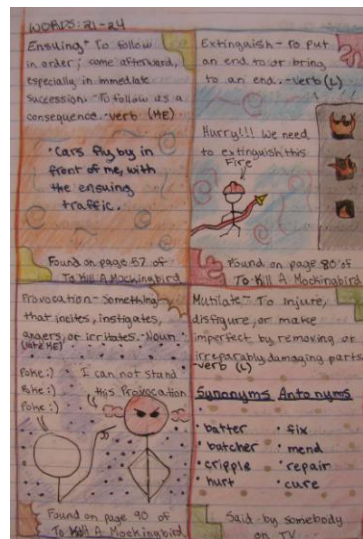 WORDS: 21-24
Ensuing- To follow
in order; come afterward,
especially in immediate
succession. -To follow as a
consequence. -verb (ME)
• Cars fly by in
front of me, with
the ensuing
traffic.
Found on page 57 of
To Kill A Mockingbird
Extinguish - To put
an end to or bring
to an end. -verb (L)
Hurry!!! We need
to extinguish this
Fire
Found on page 80 of
To Kill A Mockingbird
Provocation- Something
that incites, instigates,
angers, or irritates. -Noun
(Late ME)
Poke :)
Poke :)
Poke :)
I can not stand
this Provocation
Found on page 90 of
To Kill A Mockingbird
Mutilate- To injure,
disfigure, or make
imperfect by removing or
irreparably damaging parts.
-verb (L)
Synonyms Antonyms
• batter • fix
• butcher • mend
• cripple • repair
• hurt • cure
Said by somebody
on TV